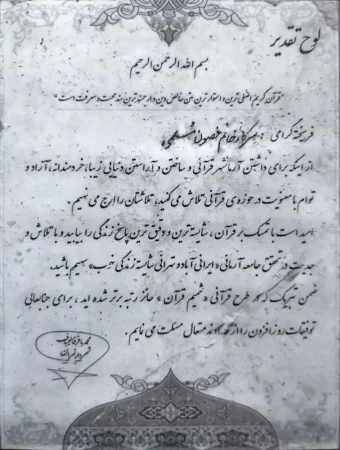 لوح تقدیر
بسم الله الرحمن الرحیم
"قرآن کریم اصلی ترین و استوارترین متن خالص دین و ارجمندترین سند محبت و معرفت است"
فرهیخته گرامی:
از اینکه برای داشتن آرمانشهر قرآنی و ساختن و آراستن دنیایی زیبا، خردمندانه، آزاد و
توام با معنویت در حوزه ی قرآنی تلاش می کنید، تلاشتان را ارج می نهیم.
امید است با تمسک بر قرآن، شایسته ترین و دقیق ترین پاسخ زندگی را بیابید و با تلاش و
جدیت در تحقق جامعه آرمانی «ایرانی آباد و تهرانی شایسته زندگی» سهیم باشید.
ضمن تبریک که در طرح قرآنی «شمیم قرآن» حائز رتبه برتر شده اید، برای جنابعالی
توفیقات روزافزون را از خداوند متعال مسئلت می نمایم.
محمد باقر قالیباف
شهردار تهران